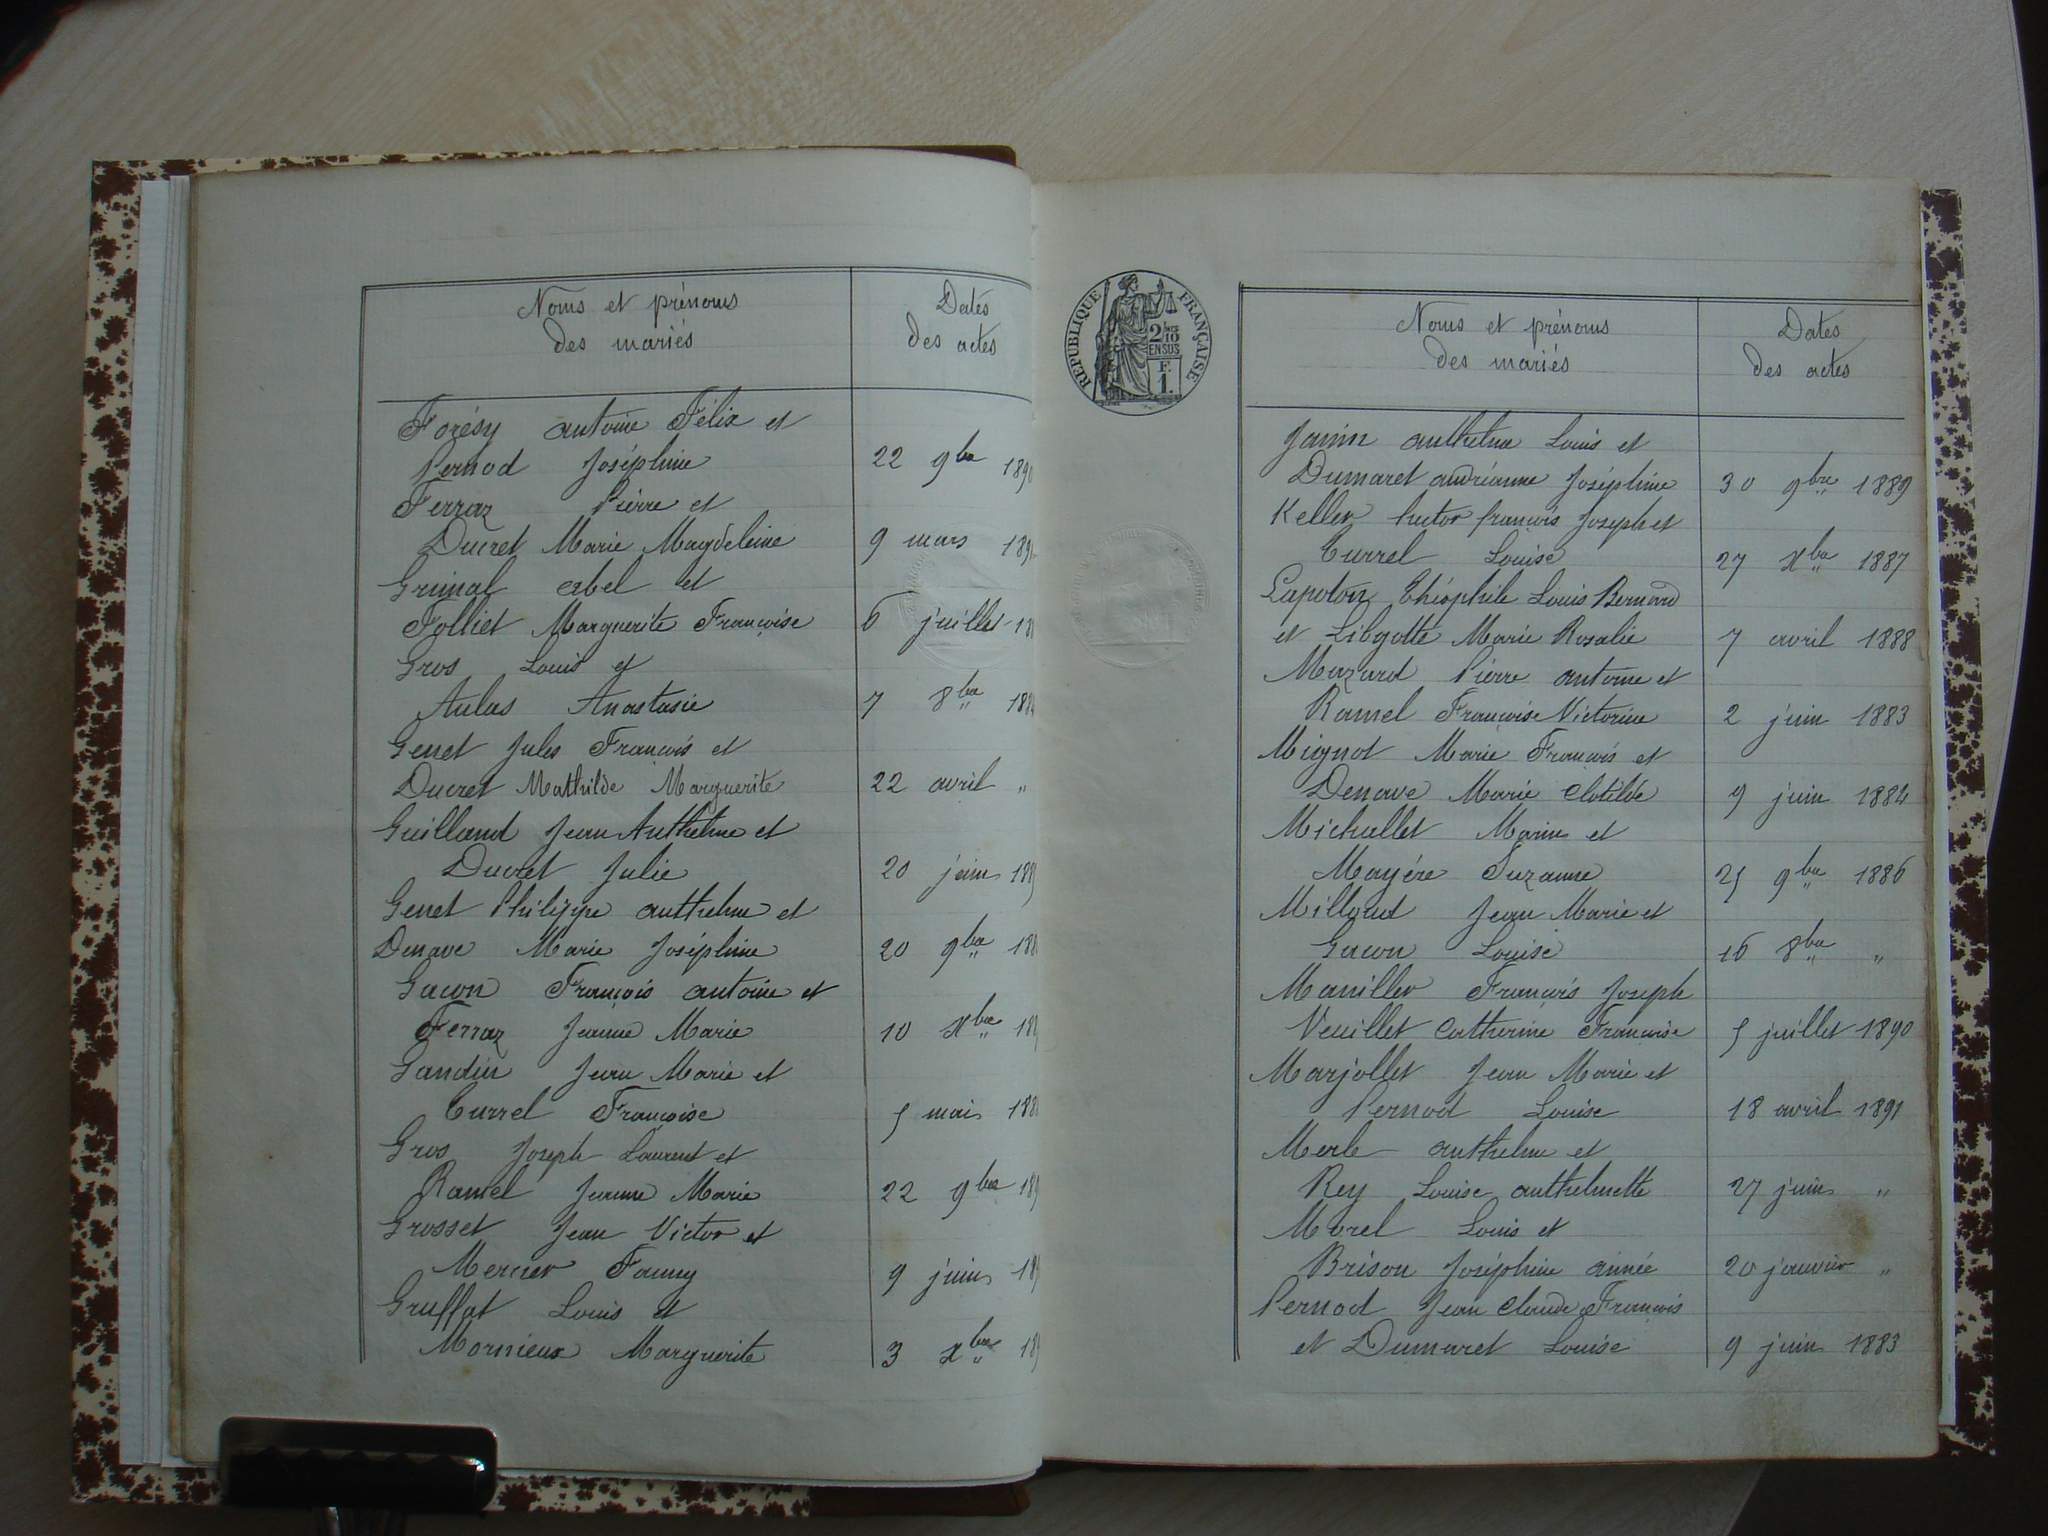 Noms et prénoms
des mariés
Dates
des actes
Forésy antoine Félix et
Pernod Joséphine 22 9bre 1890
Ferraz Pierre et
Ducret Marie Magdeleine 9 mars 189
Grimal abel et
Folliet Marguerite Françoise 6 juillet 18
Gros Louis et
Aulas Anastasie 7 8bre 188
Genet Jules François et
Ducret Mathilde Marguerite 22 avril "
Guilland Jean Anthelme et
Ducret Julie 20 juin 188
Genet Philippe anthelme et
Denave Marie Joséphine 20 9bre 188
Gacon François antoine et
Ferraz Jeanne Marie 10 Xbre 18
Gandin Jean Marie et
Currel Françoise 5 mai 188
Gros Joseph Laurent et
Ramel Jeanne Marie 22 9bre 18
Grosset Jean Victor et
Mercier Fanny 9 juin 18
Gruffat Louis et
Mornieux Marguerite 3 Xbre 18
RÉPUBLIQUE FRANÇAISE
2/10
EN SUS
F.
1.
Noms et prénoms
des mariés
Dates
des actes
Janin anthelme Louis et
Dumaret andréanne Joséphine 30 9bre 1889
Keller hector françois Joseph et
Currel Louise 27 Xbre 1887
Lapoton Théophile Louis Bernard
et Libgotte Marie Rosalie 7 avril 1888
Mazard Pierre antoine et
Ramel Françoise Victorine 2 juin 1883
Mignot Marie François et
Denave Marie Clotilde 9 juin 1884
Michallet Marin et
Mayére Suzanne 25 9bre 1886
Milloud Jean Marie et
Gacon Louise 16 8bre "
Maniller François Joseph
Veuillet Catherine Françoise 5 juillet 1890
Marjollet Jean Marie et
Pernod Louise 18 avril 1891
Merle anthelme et
Rey Louise anthelmette 27 juin "
Morel Louis et
Brison Joséphine ainée 20 janvier "
Pernod Jean Claude François
et Dumaret Louise 9 juin 1883